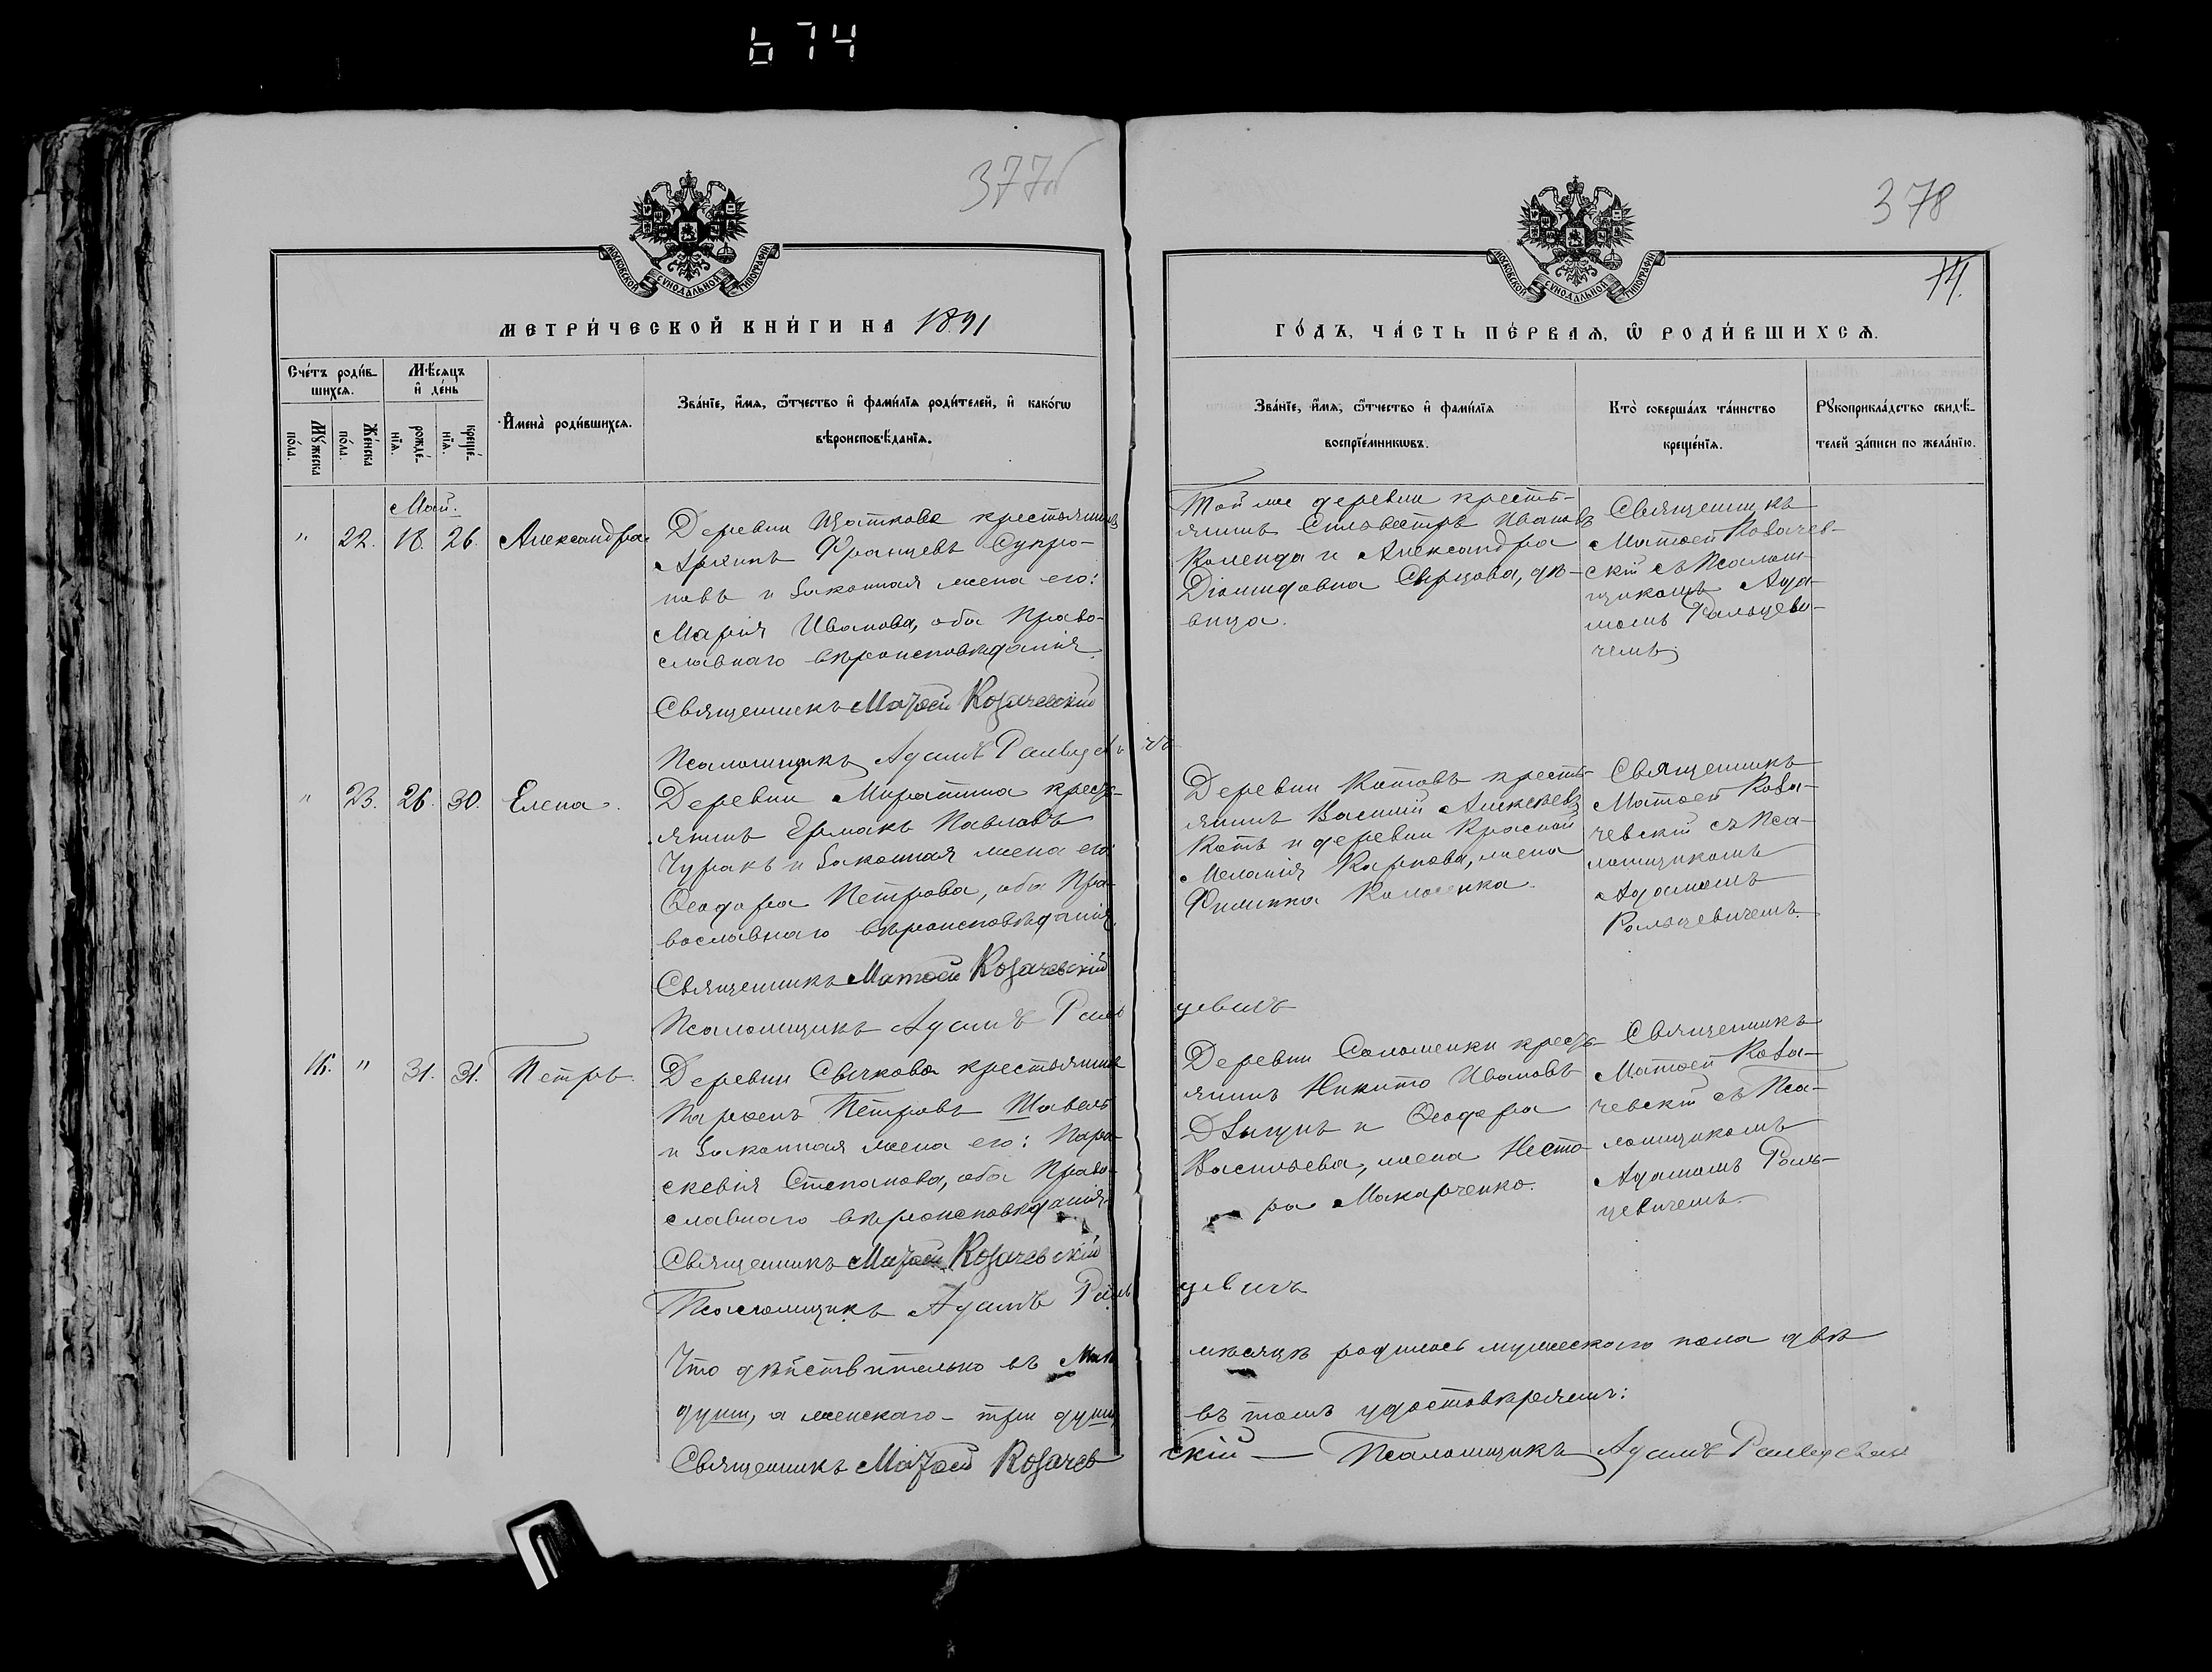 674
377об
378
74.
МОСКОВСКОЙ СѴНОДАЛЬНОЙ ТИПОГРАФІИ
МОСКОВСКОЙ СѴНОДАЛЬНОЙ ТИПОГРАФІИ
МЕТРИ́ЧЕСКОЙ КНИ́ГИ НА 1891
ГО́ДЪ, ЧА́СТЬ ПЕ́РВАѦ, Ѿ РОДИ́ВШИХСѦ.
Сче́тъ роди́в-
шихсѧ.
Мѣ́сѧцъ
и҆ де́нь
Мꙋ́жеска
по́ла.
Же́нска
по́ла.
рожде́-
нїѧ.
креще́-
нїѧ.
И҆мена̀ роди́вшихсѧ.
Зва́нїе, и҆́мѧ, ѻ҆́тчество и҆ фами́лїѧ роди́телей, и҆ како́гѡ
вѣроисповѣ́данїѧ.
Зва́нїе, и҆́мѧ, ѻ҆́тчество и҆ фами́лїѧ
воспрїе́мникѡвъ.
Кто̀ соверша́лъ та́инство
креще́нїѧ.
Рꙋкоприкла́дство свидѣ́-
телей за́писи по жела́нїю.
Май.
" 22. 18. 26. Александра
Деревни Щаткова крестьянинъ
Францевъ Супро-
новъ и законная жена его:
Марія Иванова, оба Право-
славнаго вѣроисповѣданія.
Священникъ Матѳей Ковачевскій
Псаломщикъ Адамъ Ральцевичъ
Той же деревни кресть-
янинъ Сильвестръ Ивановъ
Коленда и Александра
Діомидовна Сырцова, дѣ-
вица.
Священникъ
Матѳей Ковачев-
скій съ Псалом-
щикомъ Ада-
момъ Ральцеви-
чемъ.
" 23. 26. 30. Елена.
Деревни Миратина кресть-
янинъ Ермакъ Павловъ
Чуракъ и законная жена его:
Ѳеодора Петрова, оба Пра-
вославнаго вѣроисповѣданія.
Священникъ Матѳей Ковачевскій
Псаломщикъ Адамъ Ральцевичъ
Деревни Котовъ кресть-
янинъ Василій Алексѣевъ
Котъ и деревни Красной
Меланія Карпова, жена
Филиппа
Священникъ
Матѳей Кова-
чевскій съ Пса-
ломщикомъ
Адамомъ
Ральцевичемъ.
16. " 31. 31. Петръ.
Деревни Сычкова крестьянинъ
Парѳенъ Петровъ Шавель
и законная жена его: Пара-
скевія Степанова, оба Право-
славнаго вѣроисповѣданія.
Священникъ Матѳей Ковачевскій
Псаломщикъ Адамъ Ральцевичъ
Деревни Соломенки кресть-
янинъ Никита Ивановъ
и Ѳеодора
Васильева, жена Несто-
ра Макарченко.
Священникъ
Матѳей Кова-
чевскій съ Пса-
ломщикомъ
Адамомъ Раль-
цевичемъ.
Что дѣйствительно въ Маѣ мѣсяцѣ родилось мужескаго пола двѣ
души, а женскаго - три души, въ томъ удостовѣряемъ:
Священникъ Матѳей Ковачевскій — Псаломщикъ Адамъ Ральцевичъ